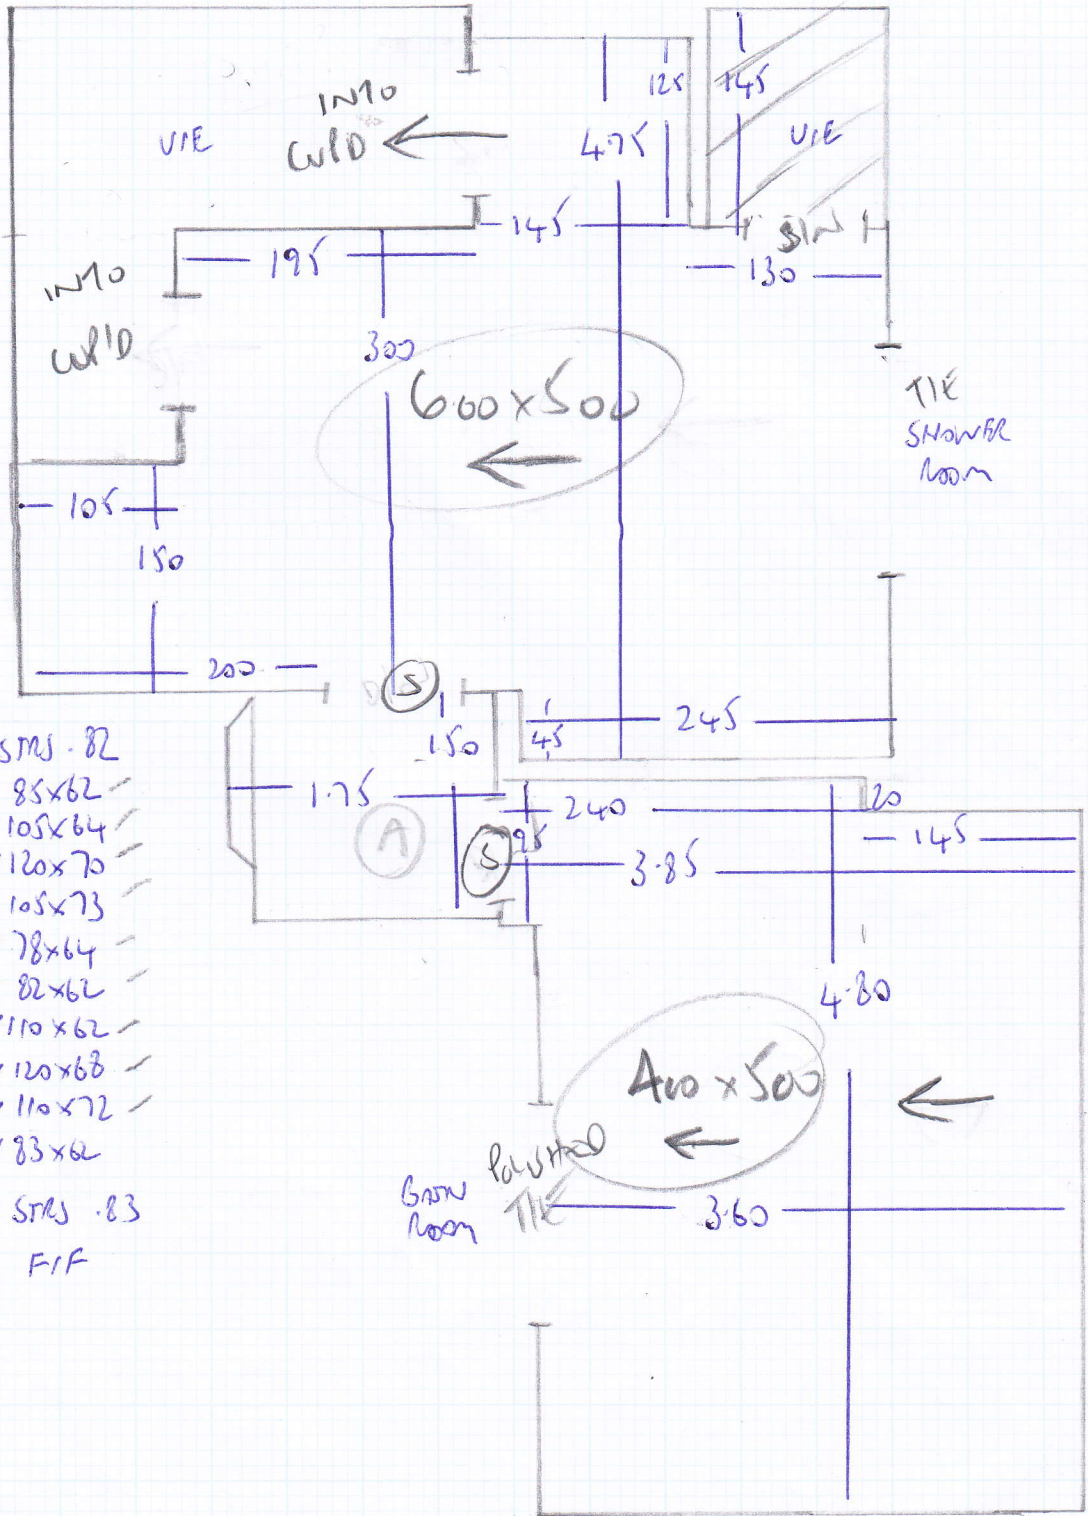 INTO
CUP'D
U/E
125
145
4.75
U/E
145
195
130
INTO
CUP'D
300
600x500
T/E
SHOWER
ROOM
105
150
200
S
150
45
245
STRS .82
85x62
105x64
120x70
105x73
78x64
82x62
110x62
120x68
110x72
83x62
STRS .83
F/F
1.75
A
S
95
240
20
145
3.85
4.80
400x500
BATH
ROOM
POLISHED
T/E
3.60